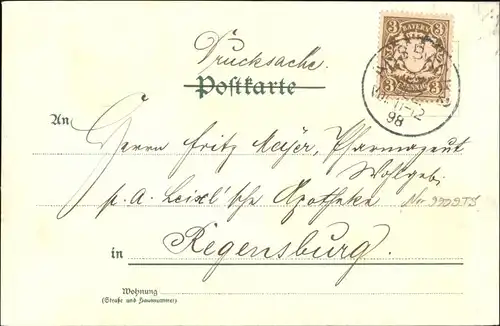 3 BAYERN 3
3 PFENNIG 3
98
Drucksache.
Postkarte
An Herrn Fritz Meijer, Pharmazeut
Wohlgeb.
p. a. Leixl'sche Apotheke
in Regensburg.
Wohnung
(Straße und Hausnummer)